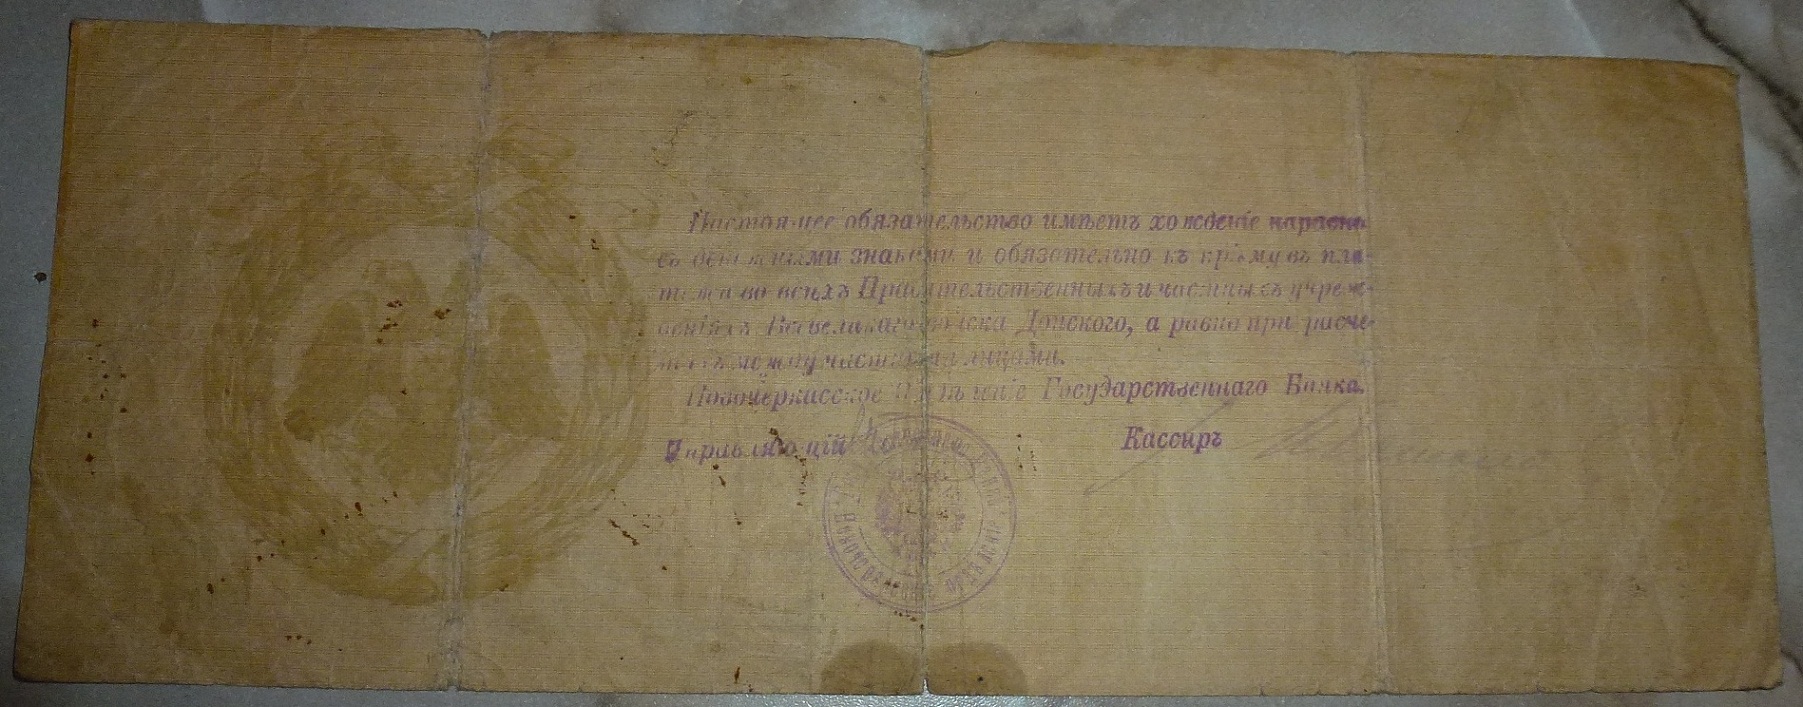 Настоящее обязательство имѣетъ хожденіе наравнѣ
съ денежными знаками и обязательно къ пріему въ пла-
тежи во всѣхъ Правительственныхъ и частныхъ учреж-
деніяхъ Всевеликаго войска Донского, а равно при расче-
тахъ между частными лицами.
Новочеркасское Отдѣленіе Государственнаго Банка.
Управляющій Кассиръ
Новочеркасское отдѣленіе